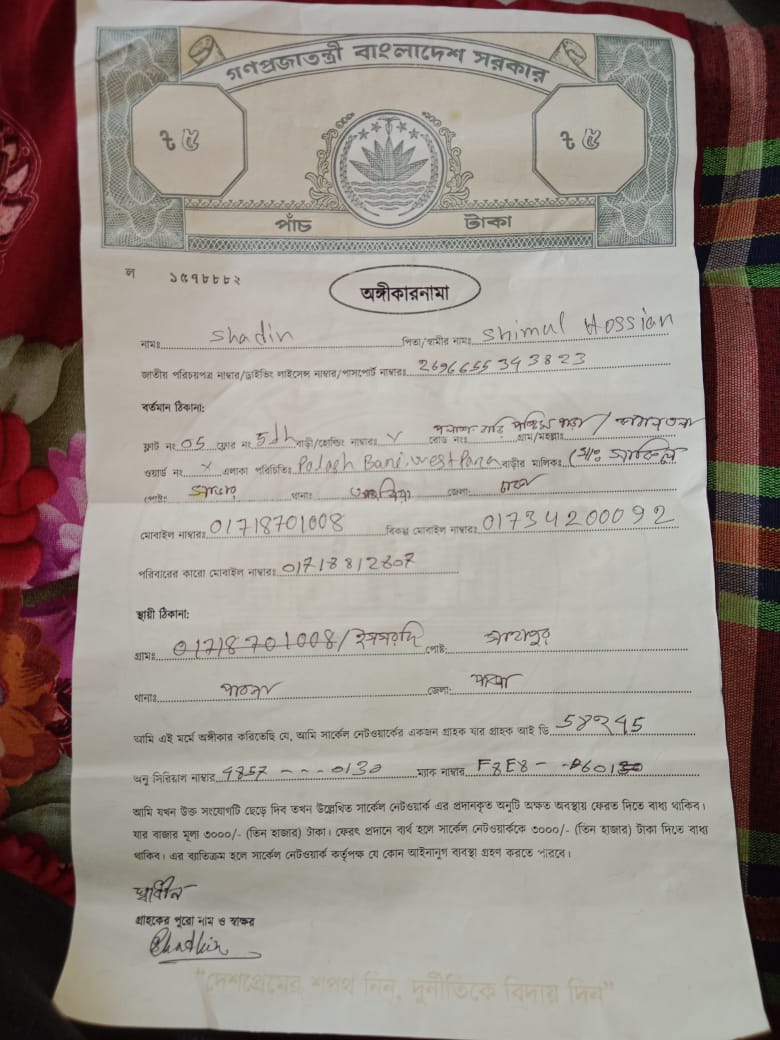 গণপ্রজাতন্ত্রী বাংলাদেশ সরকার
৳ ৫ ৳ ৫
পাঁচ টাকা
ল ১৫৭৮৮৮২
অঙ্গীকারনামা
নামঃ Shadin পিতা/স্বামীর নামঃ Shimul Hossian
জাতীয় পরিচয়পত্র নাম্বার/ড্রাইভিং লাইসেন্স নাম্বার/পাসপোর্ট নাম্বারঃ 2696655343823
বর্তমান ঠিকানা:
ফ্লাট নং 05 ফ্লোর নং 5th বাড়ী/হোল্ডিং নাম্বারঃ রোড নংঃ পশ্চিম পাড়া গ্রাম/মহল্লাঃ
ওয়ার্ড নং এলাকা পরিচিতিঃ Palash Bari, West Para বাড়ীর মালিকঃ
পোষ্ট: থানাঃ জেলা: ঢাকা
মোবাইল নাম্বারঃ 01718701008 বিকল্প মোবাইল নাম্বারঃ 01734200092
পরিবারের কারো মোবাইল নাম্বারঃ 01718812607
স্থায়ী ঠিকানা:
গ্রামঃ 01718701008/ পোষ্ট:
থানাঃ পাবনা জেলা: পাবনা
আমি এই মর্মে অঙ্গীকার করিতেছি যে, আমি সার্কেল নেটওয়ার্কের একজন গ্রাহক যার গ্রাহক আই ডি 58245
অনু সিরিয়াল নাম্বার 9857 --- 0130 ম্যাক নাম্বার F8E8-
আমি যখন উক্ত সংযোগটি ছেড়ে দিব তখন উল্লেখিত সার্কেল নেটওয়ার্ক এর প্রদানকৃত অনুটি অক্ষত অবস্থায় ফেরত দিতে বাধ্য থাকিব।
যার বাজার মূল্য ৩০০০/- (তিন হাজার) টাকা। ফেরৎ প্রদানে ব্যর্থ হলে সার্কেল নেটওয়ার্ককে ৩০০০/- (তিন হাজার) টাকা দিতে বাধ্য
থাকিব। এর ব্যতিক্রম হলে সার্কেল নেটওয়ার্ক কর্তৃপক্ষ যে কোন আইনানুগ ব্যবস্থা গ্রহণ করতে পারবে।
স্বাধীন
গ্রাহকের পুরো নাম ও স্বাক্ষর
"দেশপ্রেমের শপথ নিন, দুর্নীতিকে বিদায় দিন"